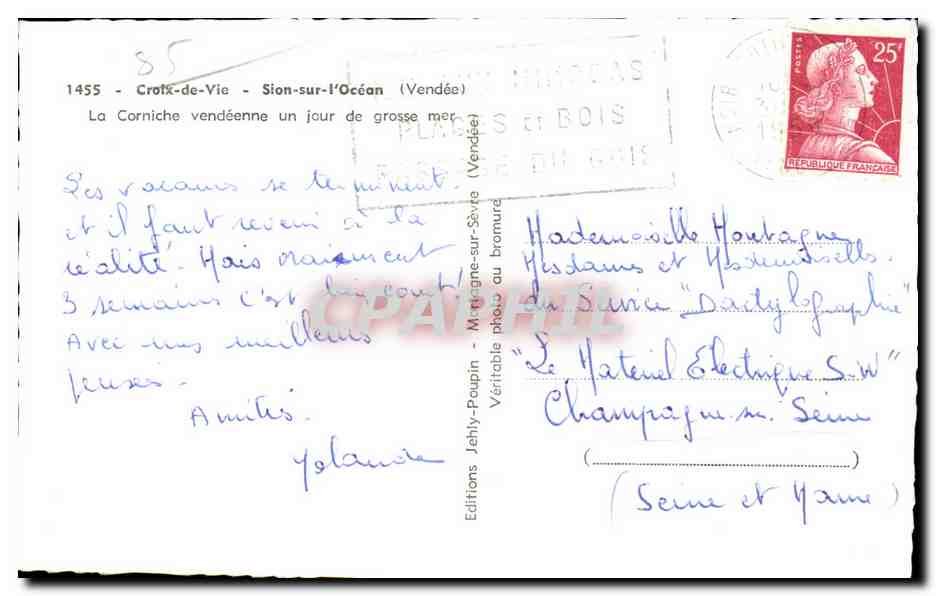 85
1455 - Croix-de-Vie - Sion-sur-l'Océan (Vendée)
La Corniche vendéenne un jour de grosse mer
MIMOSAS
PLAGES et BOIS
DU GOIS
POSTES
25F
RÉPUBLIQUE FRANÇAISE
Les vacances se terminent
et il faut revenir à la
réalité. Mais vraiment
3 semaines c'est bien court!
Avec mes meilleures
pensées.
Amitiés.
Yolande
Editions Jehly-Poupin - Mortagne-sur-Sèvre (Vendée)
Véritable photo au bromure
Mademoiselle Montagne
Mesdames et Mesdemoiselles.
du Service "Dactylographie"
"Le Matériel Electrique S.W"
Champagne-sur-Seine
(Seine et Marne)
CPAPHIL